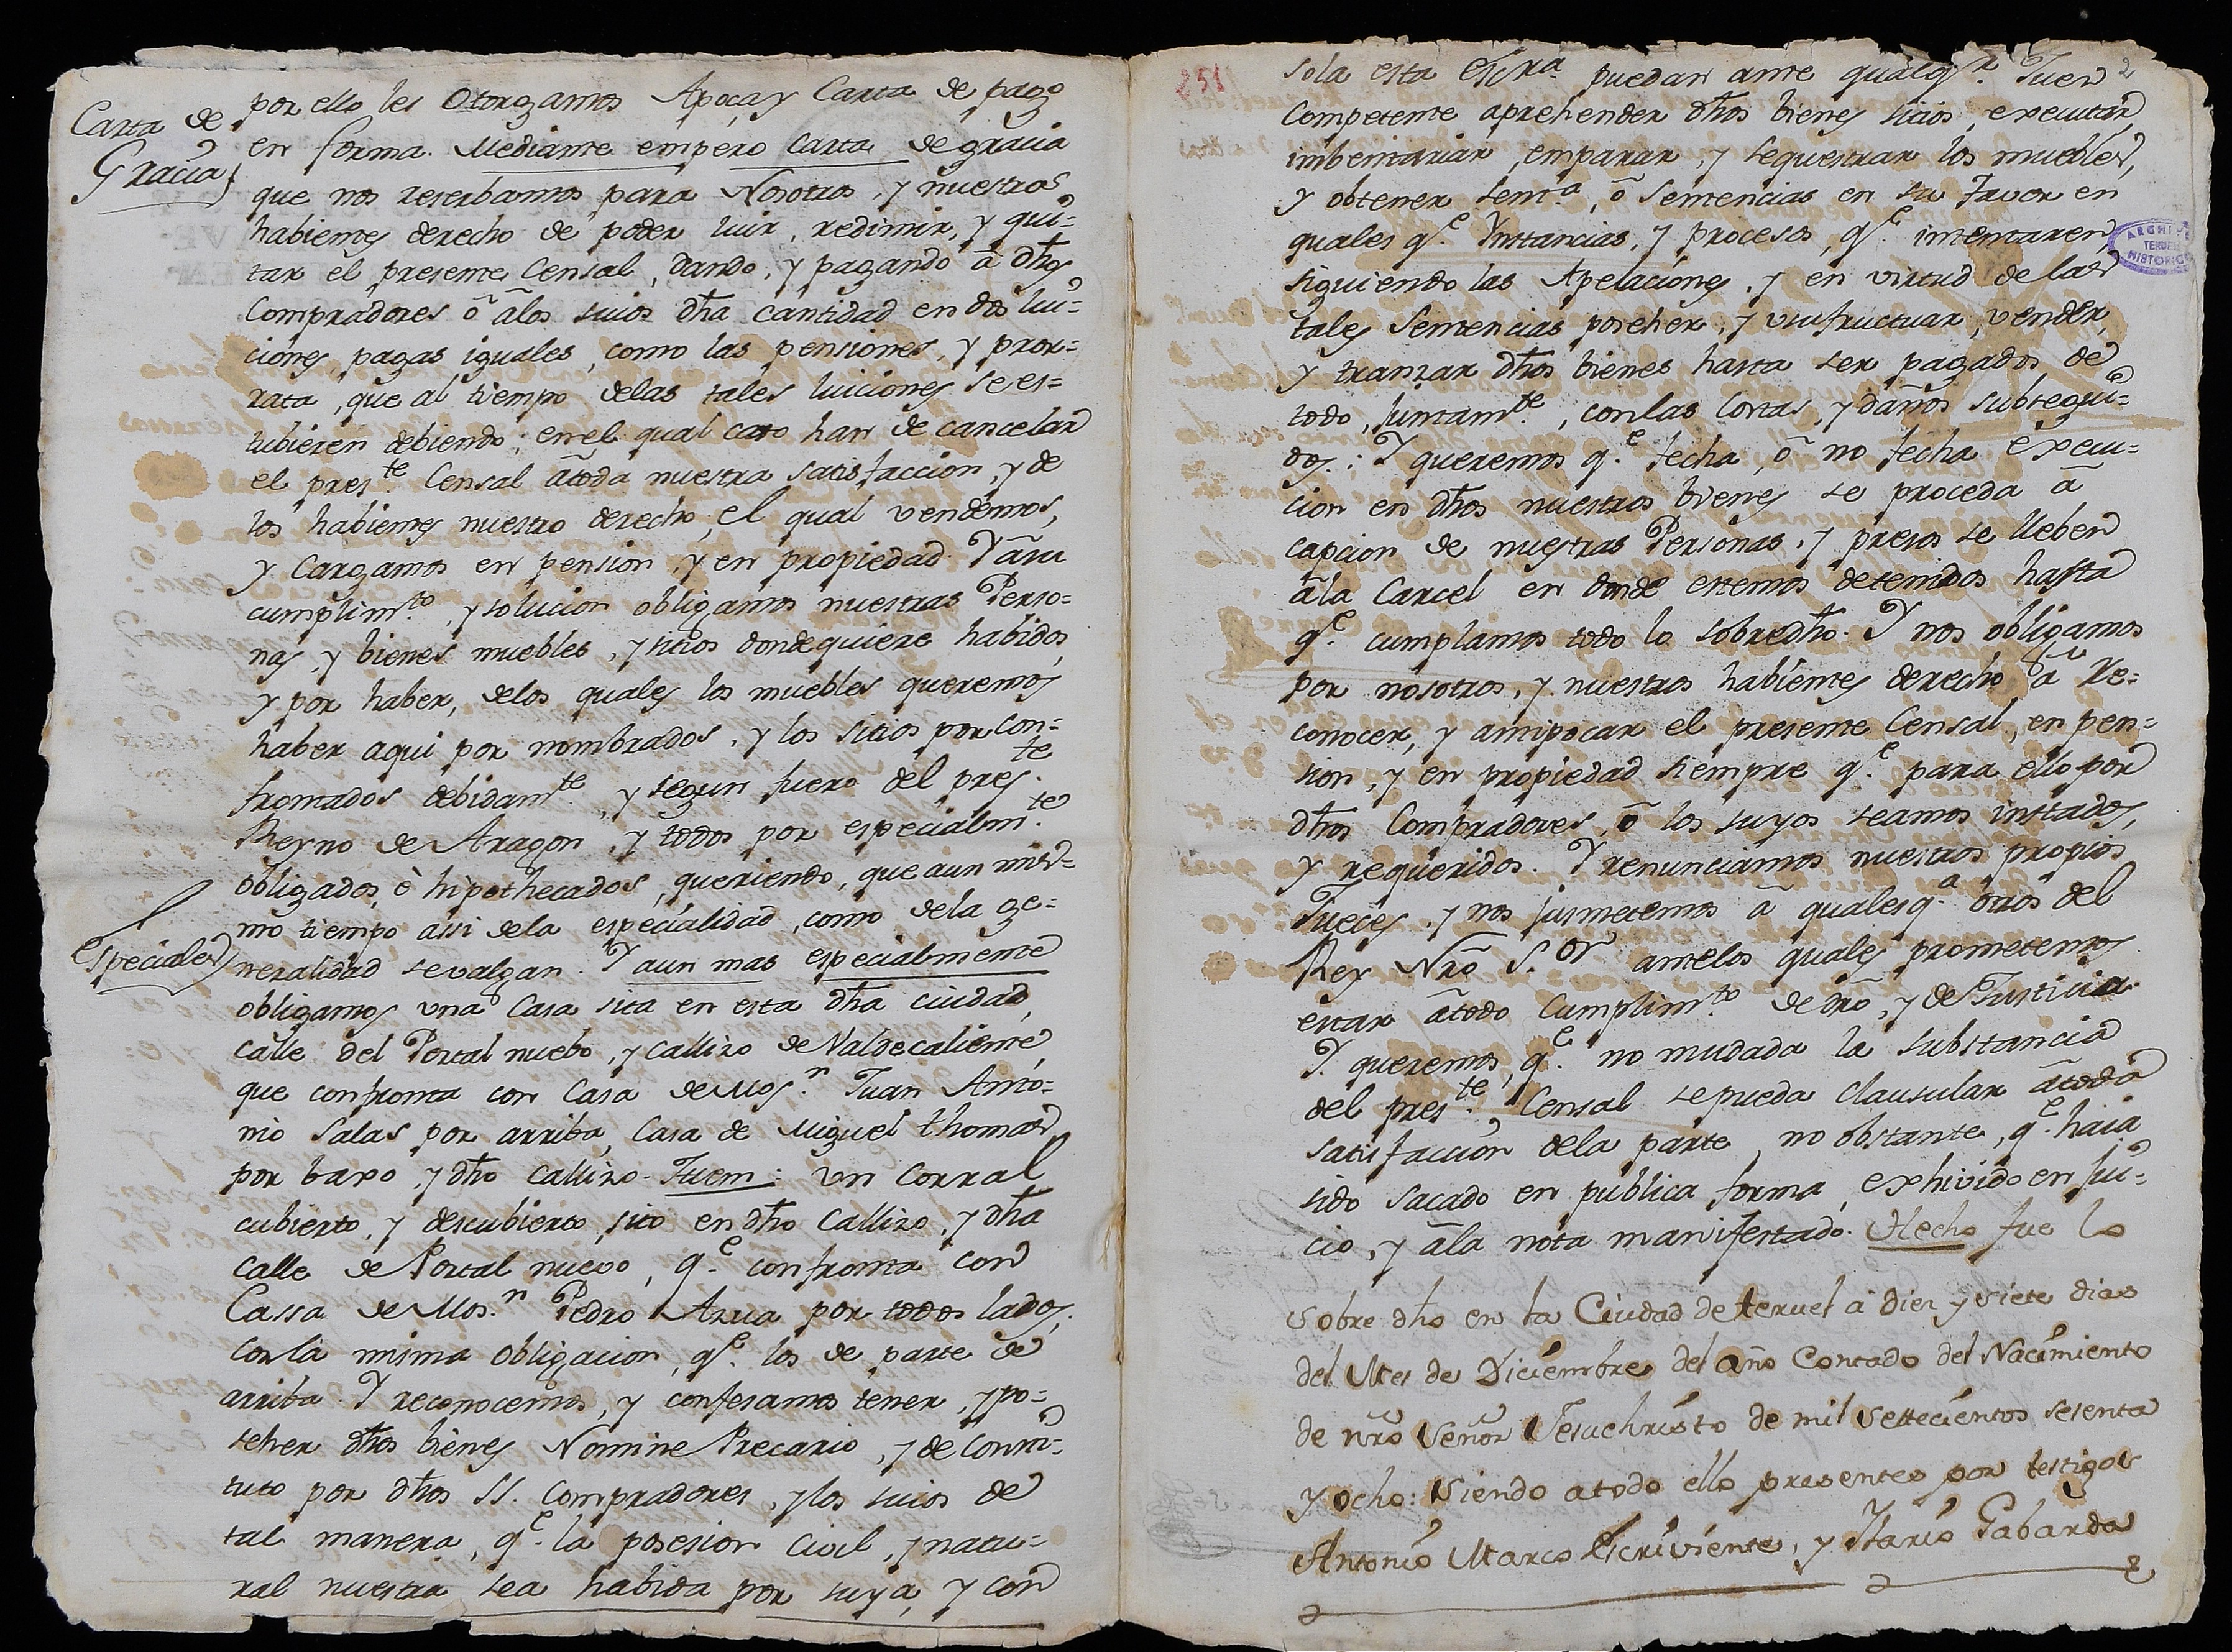 Carta de
Gracia
por ello les Otorgamos Apoca, y Carta de pago
en forma. Mediante empero carta de gracia
que nos reserbamos para Nosotros, y nuestros
habientes derecho de poder luir, redimir, y qui=
tar el presente Censal, dando, y pagando â dhos
Compradores ô âlos suios dha cantidad en dos lui=
ciones, pagas iguales, como las pensiones, y pror=
rata, que al tiempo delas tales luiciones se es=
tubieren debiendo; en el qual caso han de cancelar
el pres.te Censal âtoda nuestra satisfaccion, y de
los habientes nuestro derecho, el qual vendemos,
y Cargamos en pension, y en propiedad. Y âsu
cumplim.to, y solucion obligamos nuestras Perso=
nas, y bienes muebles, y sitios dondequiere habidos,
y por haber, delos quales los muebles queremos
haber aqui por nombrados, y los sitios por con=
frontados debidam.te, y segun fuero del pres.te
Reyno de Aragon, y todos por especialm.te
obligados, è hipothecados, queriendo, que aun mis=
mo tiempo assi dela especialidad, como dela ge=
especiales
neralidad se valgan. Y aun mas especialmente
obligamos una Casa sita en esta dha ciudad,
calle del Portal nuebo, y callizo de Valdecaliente,
que confronta con Casa de Mos.n Juan Anto=
nio Salas por arriba, Casa de Miguel thomas
por baxo, y dho callizo. Ittem: un corral
cubierto, y descubierto, sito en dho Callizo, y dha
calle de Portal nuevo, q.e confronta con
Cassa de Mos.n Pedro Azua por todos lados,
con la misma obligacion, q.e los de parte de
arriba. Y reconocemos, y confesamos tener, y po=
seher dhos bienes Nomine Precario, y de Consti=
tuto por dhos SS. Compradores, y los suios de
tal manera, q.e la posesion Civil, y natu=
ral nuestra sea habida por suya, y con
251
2
sola esta escra puedan ante qualq.r Juez
Competente aprehender dhos bienes sitios, executar
imbentariar, emparar, y sequestrar los muebles,
y obtener sent.a, ô sentencias en su favor en
quales q.e Instancias, y procesos, q.e intentaren,
ARCHIVO
TERUEL
HISTORICO
siguiendo las Apelaciones, y en virtud de las
tales Sentencias poseher, y usufructuar, vender,
y tranzar dhos bienes hasta ser pagados de
todo, juntam.te, con las Costas, y daños subsegui=
dos: Y queremos q.e fecha, ô no fecha execu=
cion en dhos nuestros bienes se proceda â
capcion de nuestras Personas, y presos se lleben
âla Carcel en donde estemos detenidos hasta
q.e cumplamos todo lo sobredho. Y nos obligamos
por nosotros, y nuestros habientes derecho â Re=
conocer, y antipocar el presente Censal, en pen=
sion, y en propiedad siempre q.e para ello por
dhos Compradores, ô los suyos seamos instados,
y requeridos. Y renunciamos nuestros propios
Jueces, y nos jusmetemos â qualesq.a otros del
Rey Nro S.or antelos quales prometemos
estar âtodo Cumplim.to de dro, y de Justicia.
Y queremos, q.e no mudada la substancia
del pres.te Censal se pueda Clausular âtoda
satisfaccion dela parte, no obstante, q.e haia
sido sacado en publica forma, exhivido en jui=
cio, y âla nota manifestado. Hecho fue lo
sobre dho en la Ciudad de teruel â diez y siete dias
del Mes de Diciembre del año Contado del Nacimiento
de nro Señor Jesuchristo de mil settecientos sesenta
y ocho: Siendo atodo ello presentes por testigos
Antonio Marco Escriviente, y Ylario Gabarda